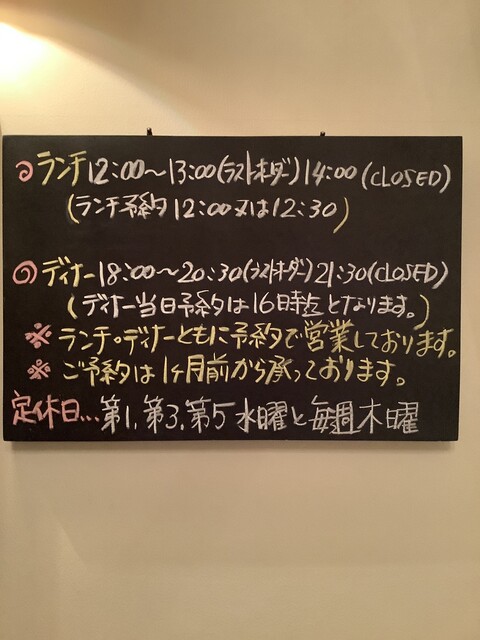 ◎ランチ12:00～13:00(ラストオーダー)14:00(CLOSED)
(ランチ予約12:00又は12:30)
◎ディナー18:00～20:30(ラストオーダー)21:30(CLOSED)
(ディナー当日予約は16時迄となります。)
※ランチ・ディナーともに予約で営業しております。
※ご予約は1ヶ月前から承っております。
定休日...第1.第3.第5水曜と毎週木曜